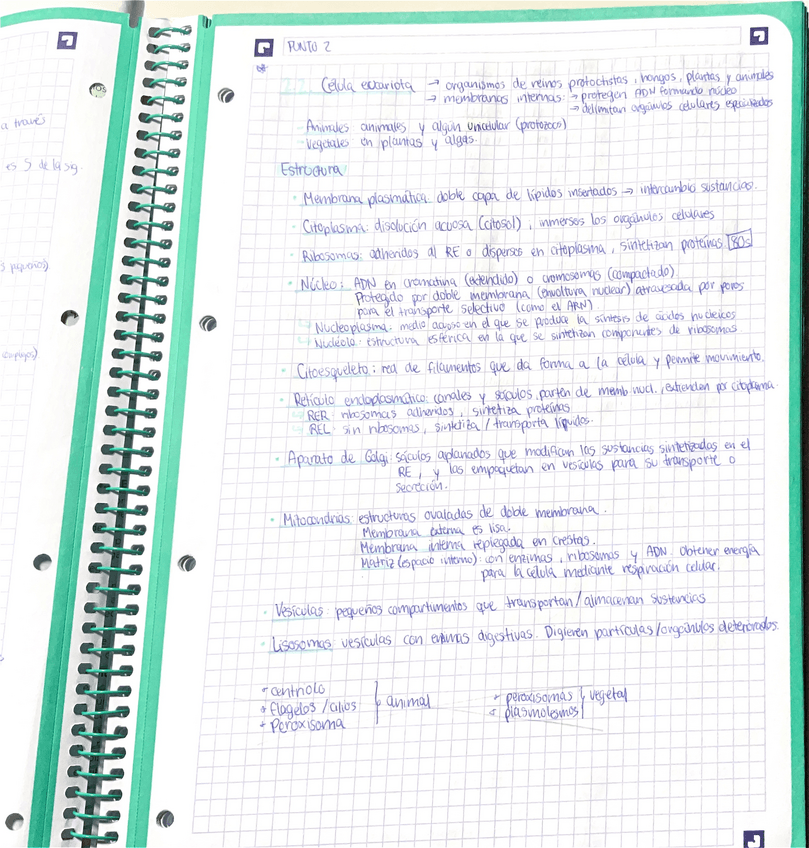 a través
es S de la sg.
s pequeños)
PUNTO 2
2.2. Célula eucariota → organismos de reinos protoctistas, hongos, plantas y animales
→ membranas internas: → protegen ADN formando núcleo
→ delimitan orgánulos celulares especializados
Animales animales y algún unicelular (protozoo)
Vegetales en plantas y algas.
Estructura
· Membrana plasmática: doble capa de lípidos insertados → intercambio sustancias.
· Citoplasma: disolución acuosa (citosol), inmersos los orgánulos celulares
· Ribosomas: adheridos al RE o dispersos en citoplasma, sintetizan proteínas. 80s
· Núcleo: ADN en cromatina (extendido) o cromosomas (compactado)
Protegido por doble membrana (envoltura nuclear) atravesada por poros
para el transporte selectivo (como el ARN)
Nucleoplasma: medio acuoso en el que se produce la síntesis de ácidos nucleicos
Nucléolo: estructura esférica en la que se sintetizan componentes de ribosomas.
· Citoesqueleto: red de filamentos que da forma a la célula y permite movimiento.
· Retículo endoplasmático: canales y sáculos, parten de memb. nucl., extienden por citoplasma
RER: ribosomas adheridos, sintetiza proteínas
REL: sin ribosomas, sintetiza/transporta lípidos.
· Aparato de Golgi: sáculos aplanados que modifican las sustancias sintetizadas en el
RE, y las empaquetan en vesículas para su transporte o
secreción.
· Mitocondrias: estructuras ovaladas de doble membrana.
Membrana externa es lisa.
Membrana interna replegada en crestas.
Matriz (espacio interno): con enzimas, ribosomas y ADN. Obtener energía
para la célula mediante respiración celular.
· Vesículas: pequeños compartimentos que transportan/almacenan sustancias
· Lisosomas: vesículas con enzimas digestivas. Digieren partículas/orgánulos deteriorados.
+ centriolo
+ flagelos / cilios } animal
+ peroxisoma
+ peroxisomas } vegetal
+ plasmolesmos